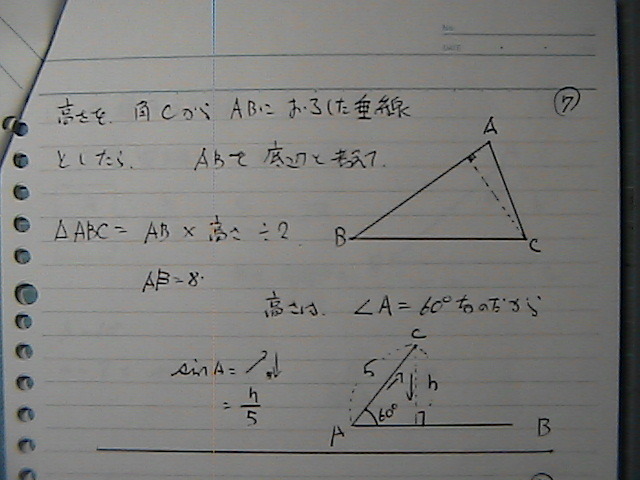 NO.
DATE
⑦
高さを、角CからABにおろした垂線
としたら、 ABを底辺と考えて、
A
B
C
△ABC = AB × 高さ ÷ 2
AB = 8.
高さは、∠A = 60°なのだから
sin A = ↗↓
= h/5
C
5
h
60°
A
B